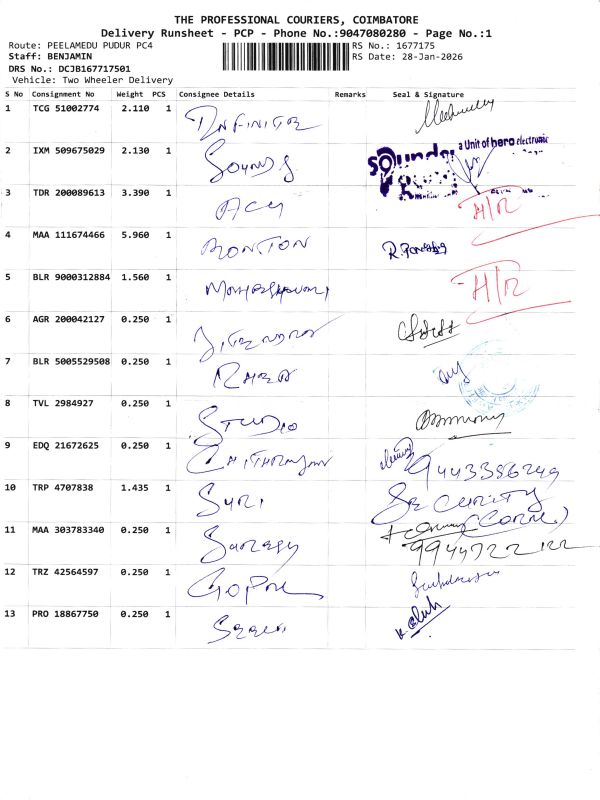 THE PROFESSIONAL COURIERS, COIMBATORE
Delivery Runsheet - PCP - Phone No.:9047080280 - Page No.:1
Route: PEELAMEDU PUDUR PC4 RS No.: 1677175
Staff: BENJAMIN RS Date: 28-Jan-2026
DRS No.: DCJB167717501
Vehicle: Two Wheeler Delivery
S No Consignment No Weight PCS Consignee Details Remarks Seal & Signature
1 TCG 51002774 2.110 1 INFINITE
2 IXM 509675029 2.130 1 SOUNDS Sounder a Unit of hero electronic
3 TDR 200089613 3.390 1 ACU H/R
4 MAA 111674466 5.960 1 BONTON
5 BLR 9000312884 1.560 1 H/R
6 AGR 200042127 0.250 1 JITENDRA
7 BLR 5005529508 0.250 1
8 TVL 2984927 0.250 1 STUDIO
9 EDQ 21672625 0.250 1 9443386249
10 TRP 4707838 1.435 1 SURI SECURITY
11 MAA 303783340 0.250 1 SURESH 9944722122
12 TRZ 42564597 0.250 1 GOPAL
13 PRO 18867750 0.250 1